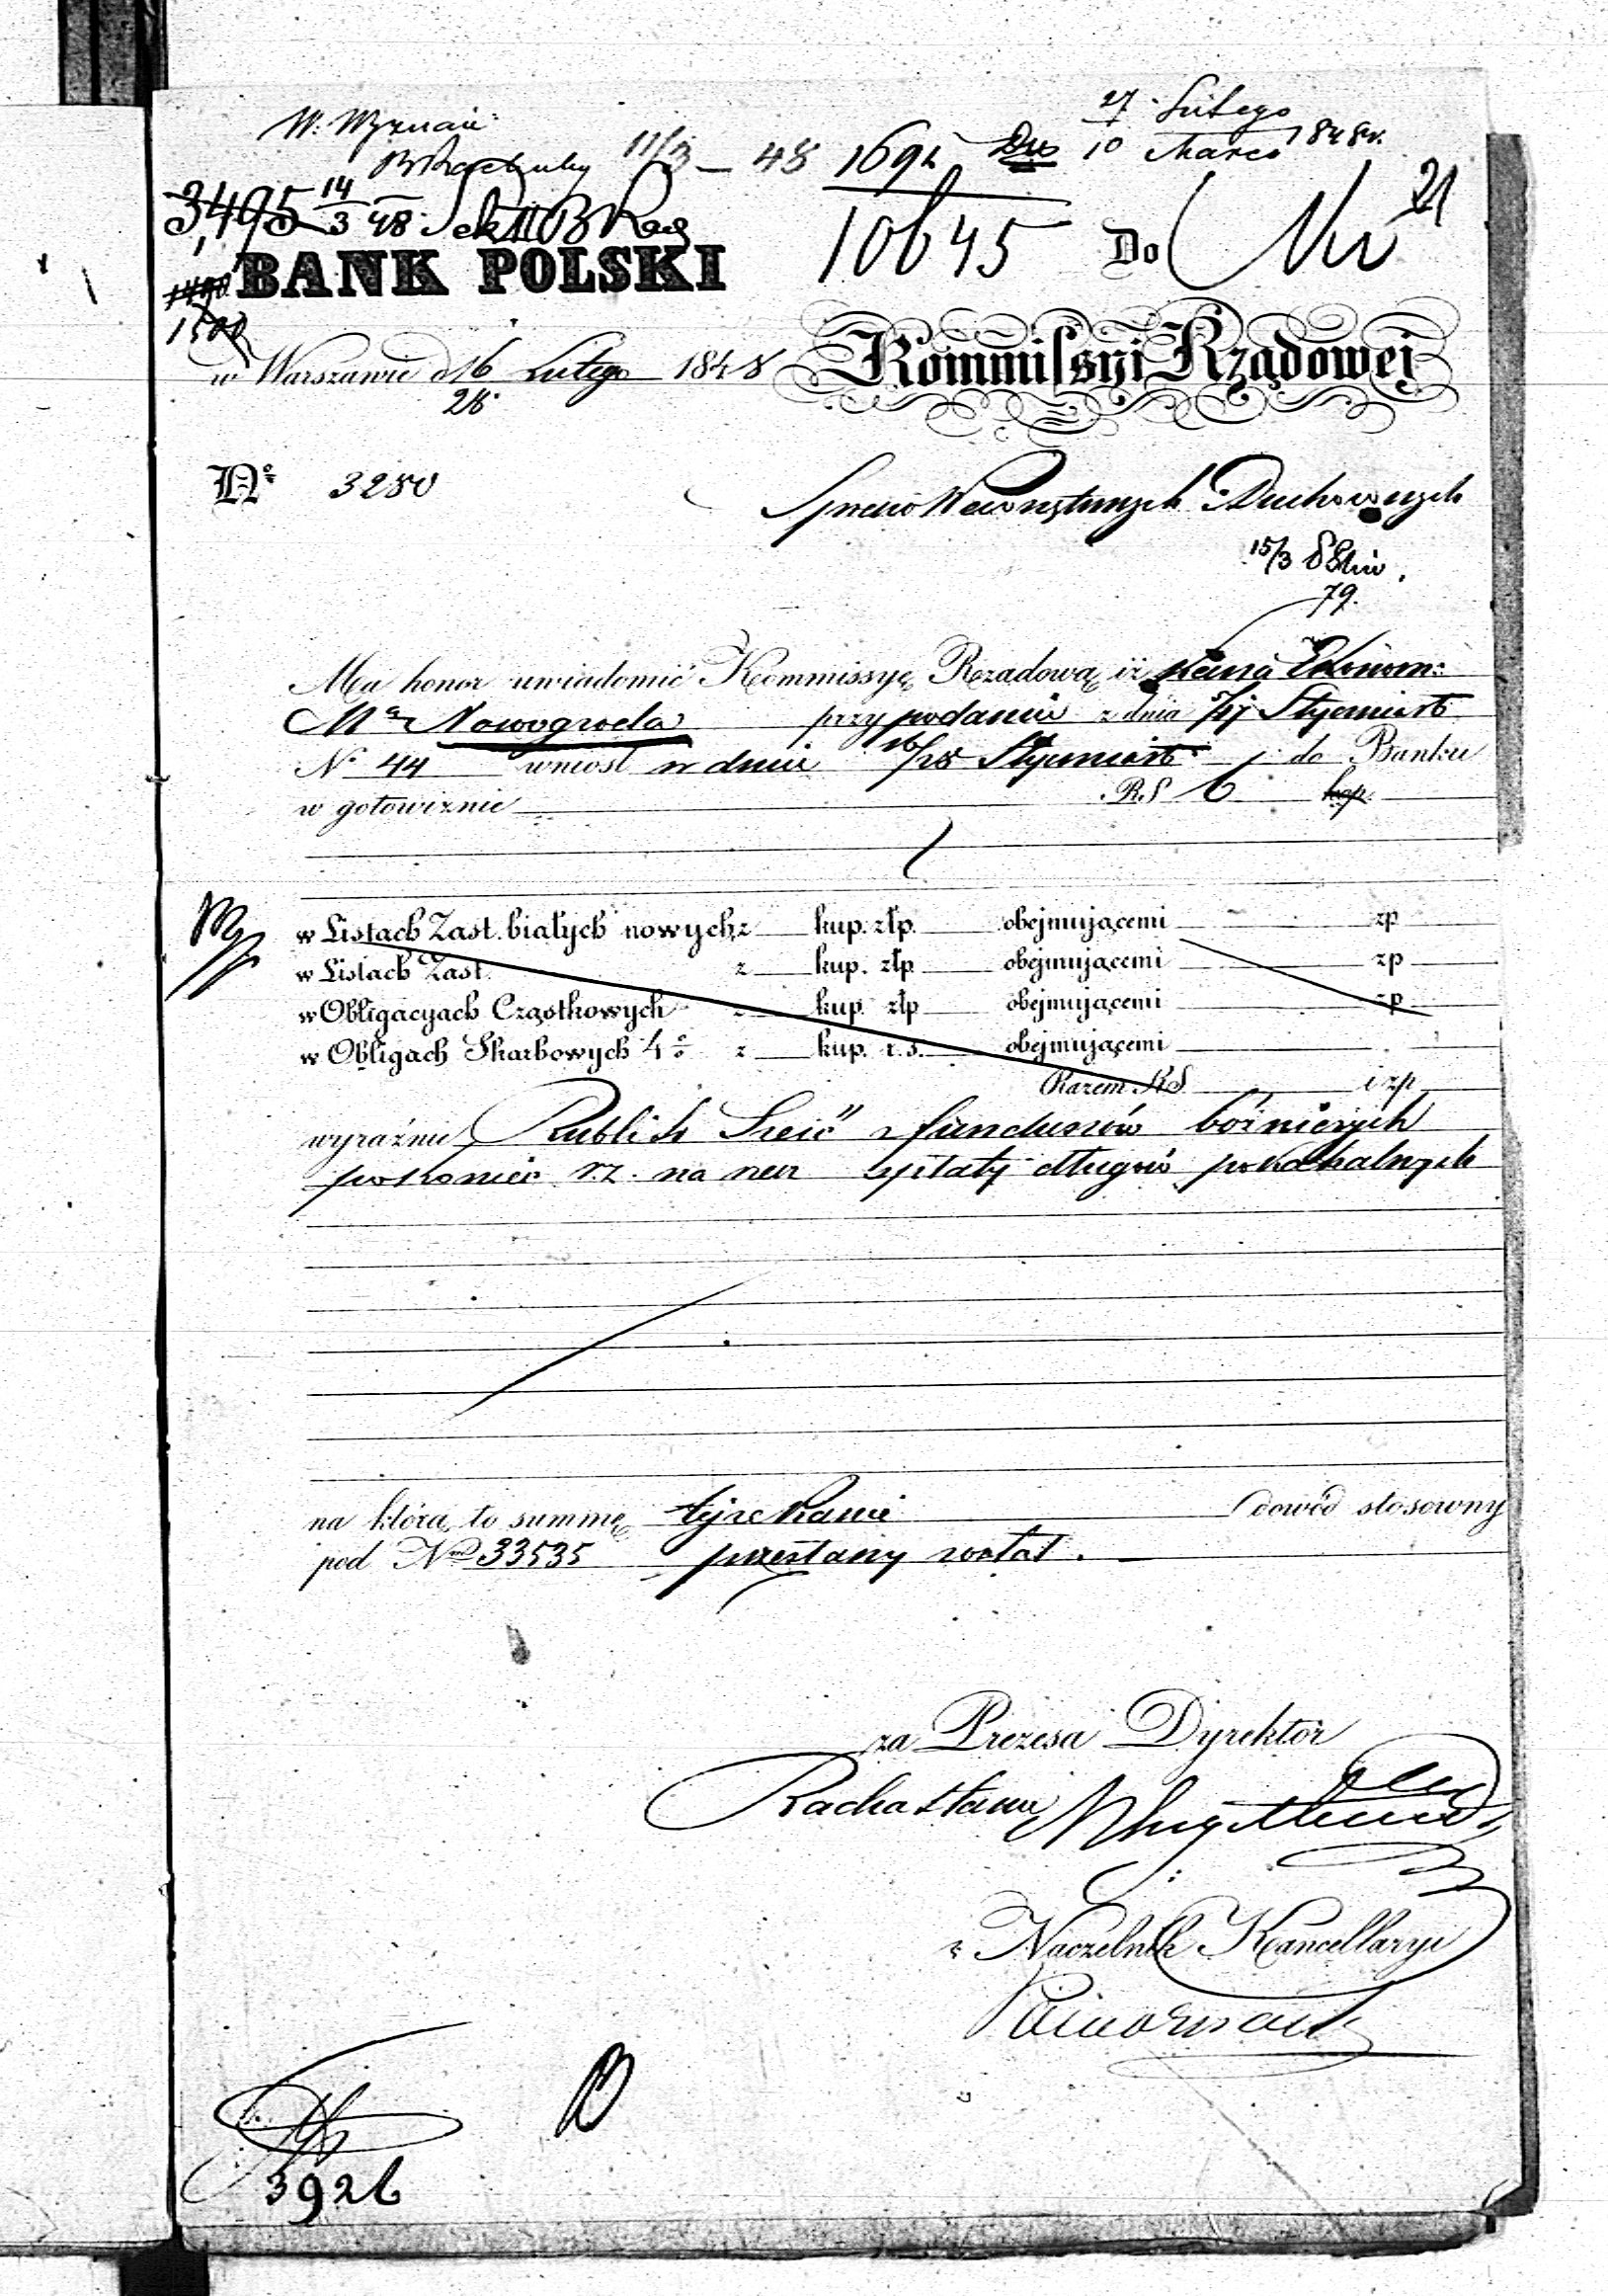 27 Lutego
W. Wyznań 11/3 – 48 1692 Dns 10 Marca 1848 r.
3495 14/3 48 Sek II B Rach
10645 Do 21
BANK POLSKI
1500
w Warszawie d 16 Lutego 1848
28
Kommissyi Rządowej
Nº 3280
Spraw Wewnętrznych i Duchownych
15/3
79.
Ma honor uwiadomić Kommissyę Rządową iż Kassa Ekonom:
Mta Nowogroda przy podaniu z dnia 5/17 Stycznia r b
Nº 44 wniosł w dniu 16/28 Stycznia r b do Banku
w gotowiznie R.S 6 kop.
w Listach Zast. białych nowych z kup. złp. obejmującemi zp
w Listach Zast. z kup. złp. obejmującemi zp
w Obligacyach Cząstkowych z kup. złp obejmującemi zp
w Obligach Skarbowych 4% z kup. r. s. obejmującemi
Razem RS i zp
wyraźnie Rubli sr. Sześć z funduszów bóżniczych
po koniec r.z. na rzecz spłaty długów pokahalnych
na którą to summę tejże Kassie dowód stosowny
pod Nrem 33535 przesłany został.
za Prezesa Dyrektor
z Naczelnik Kancellaryi
3926